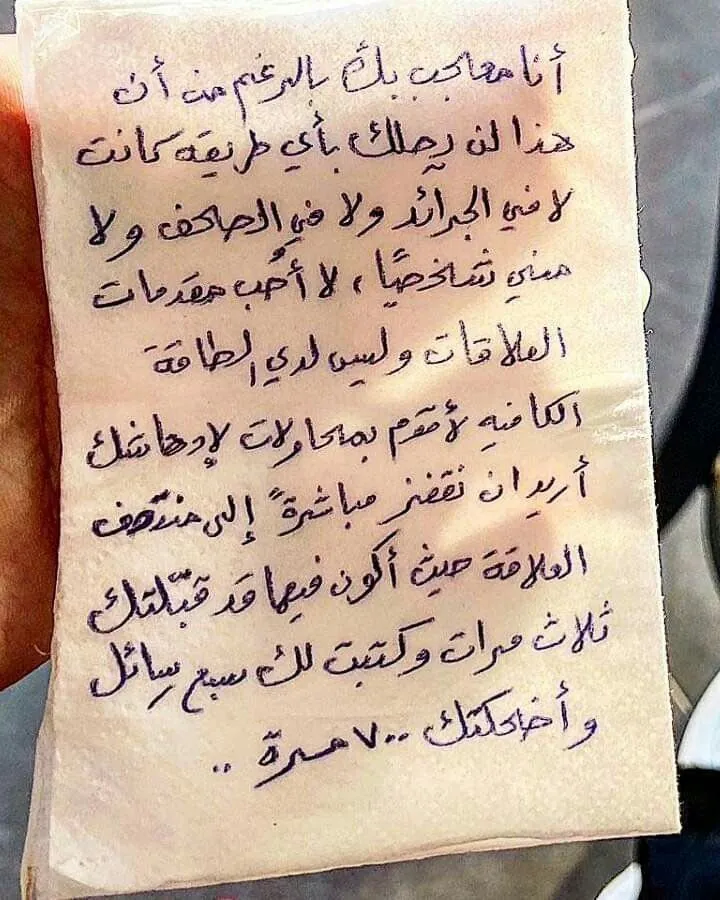 أنا معجب بك بالرغم من أن
هذا لن يصلك بأي طريقه كانت
لا في الجرائد ولا في الصحف ولا
مني شخصيًا ، لا أُحب مقدمات
العلاقات وليس لدي الطاقة
الكافيه لأقوم بمحاولات لإدهاشك
أريد ان نقفز مباشرةً إلى منتصف
العلاقة حيث أكون فيها قد قبّلتك
ثلاث مرات وكتبت لك سبع سِائل
وأضحكتك ٧٠٠ مرة ..